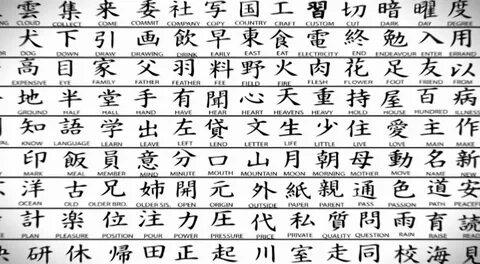 雲 集 来 委 社 写 国 工 習 切 暗 曜 度
CLOUD COLLECT COME COMMIT COMPANY COPY COUNTRY CRAFT CUSTOM CUT DARK DAY DEGREE
犬 下 引 画 飲 早 東 食 電 終 勉 入 用
DOG DOWN DRAW DRAWING DRINK EARLY EAST EAT ELECTRICITY END ENDEAVOUR ENTER ERRAND
高 目 家 父 羽 料 野 火 肉 花 足 友 以
EXPENSIVE EYE FAMILY FATHER FEATHER FEE FIELD FIRE FLESH FLOWER FOOT FRIEND FROM
地 半 堂 手 有 聞 心 天 重 持 屋 百 病
GROUND HALF HALL HAND HAVE HEAR HEART HEAVEN HEAVY HOLD HOUSE HUNDRED ILLNESS
知 語 学 出 左 貸 文 生 少 住 愛 主 作
KNOW LANGUAGE LEARN LEAVE LEFT LEND LETTER LIFE LITTLE LIVE LOVE MAIN MAKE
印 飯 員 意 分 口 山 月 朝 母 動 名 新
MARK MEAL MEMBER MIND MINUTE MOUTH MOUNTAIN MOON MORNING MOTHER MOVE NAME NEW
洋 古 兄 姉 開 元 外 紙 親 通 色 道 安
OCEAN OLD OLDER BRO. OLDER SIS. OPEN ORIGIN OUTSIDE PAPER PARENT PASS PASSION PATH PEACEFUL
計 楽 位 注 力 圧 代 私 質 問 雨 育 読
PLAN PLEASURE POSITION POUR POWER PRESSURE PRICE PRIVATE QUALITY QUESTION RAIN RAISE READ
研 休 帰 田 正 起 川 室 走 同 校 海 見